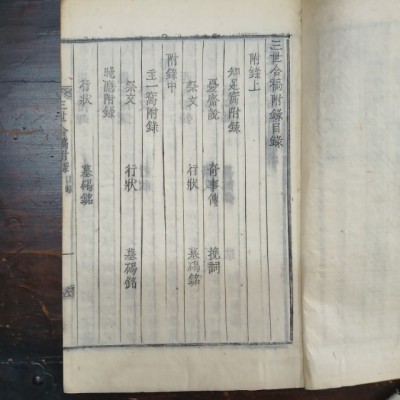 三世合稿附錄目錄
附錄上
知足窩附錄
憂齋說 奇事傳 挽詞
祭文 行狀 墓碣銘
附錄中
主一窩附錄
祭文 行狀 墓碣銘
晚聽附錄
行狀 墓碣銘
三世合稿附錄 目錄 一